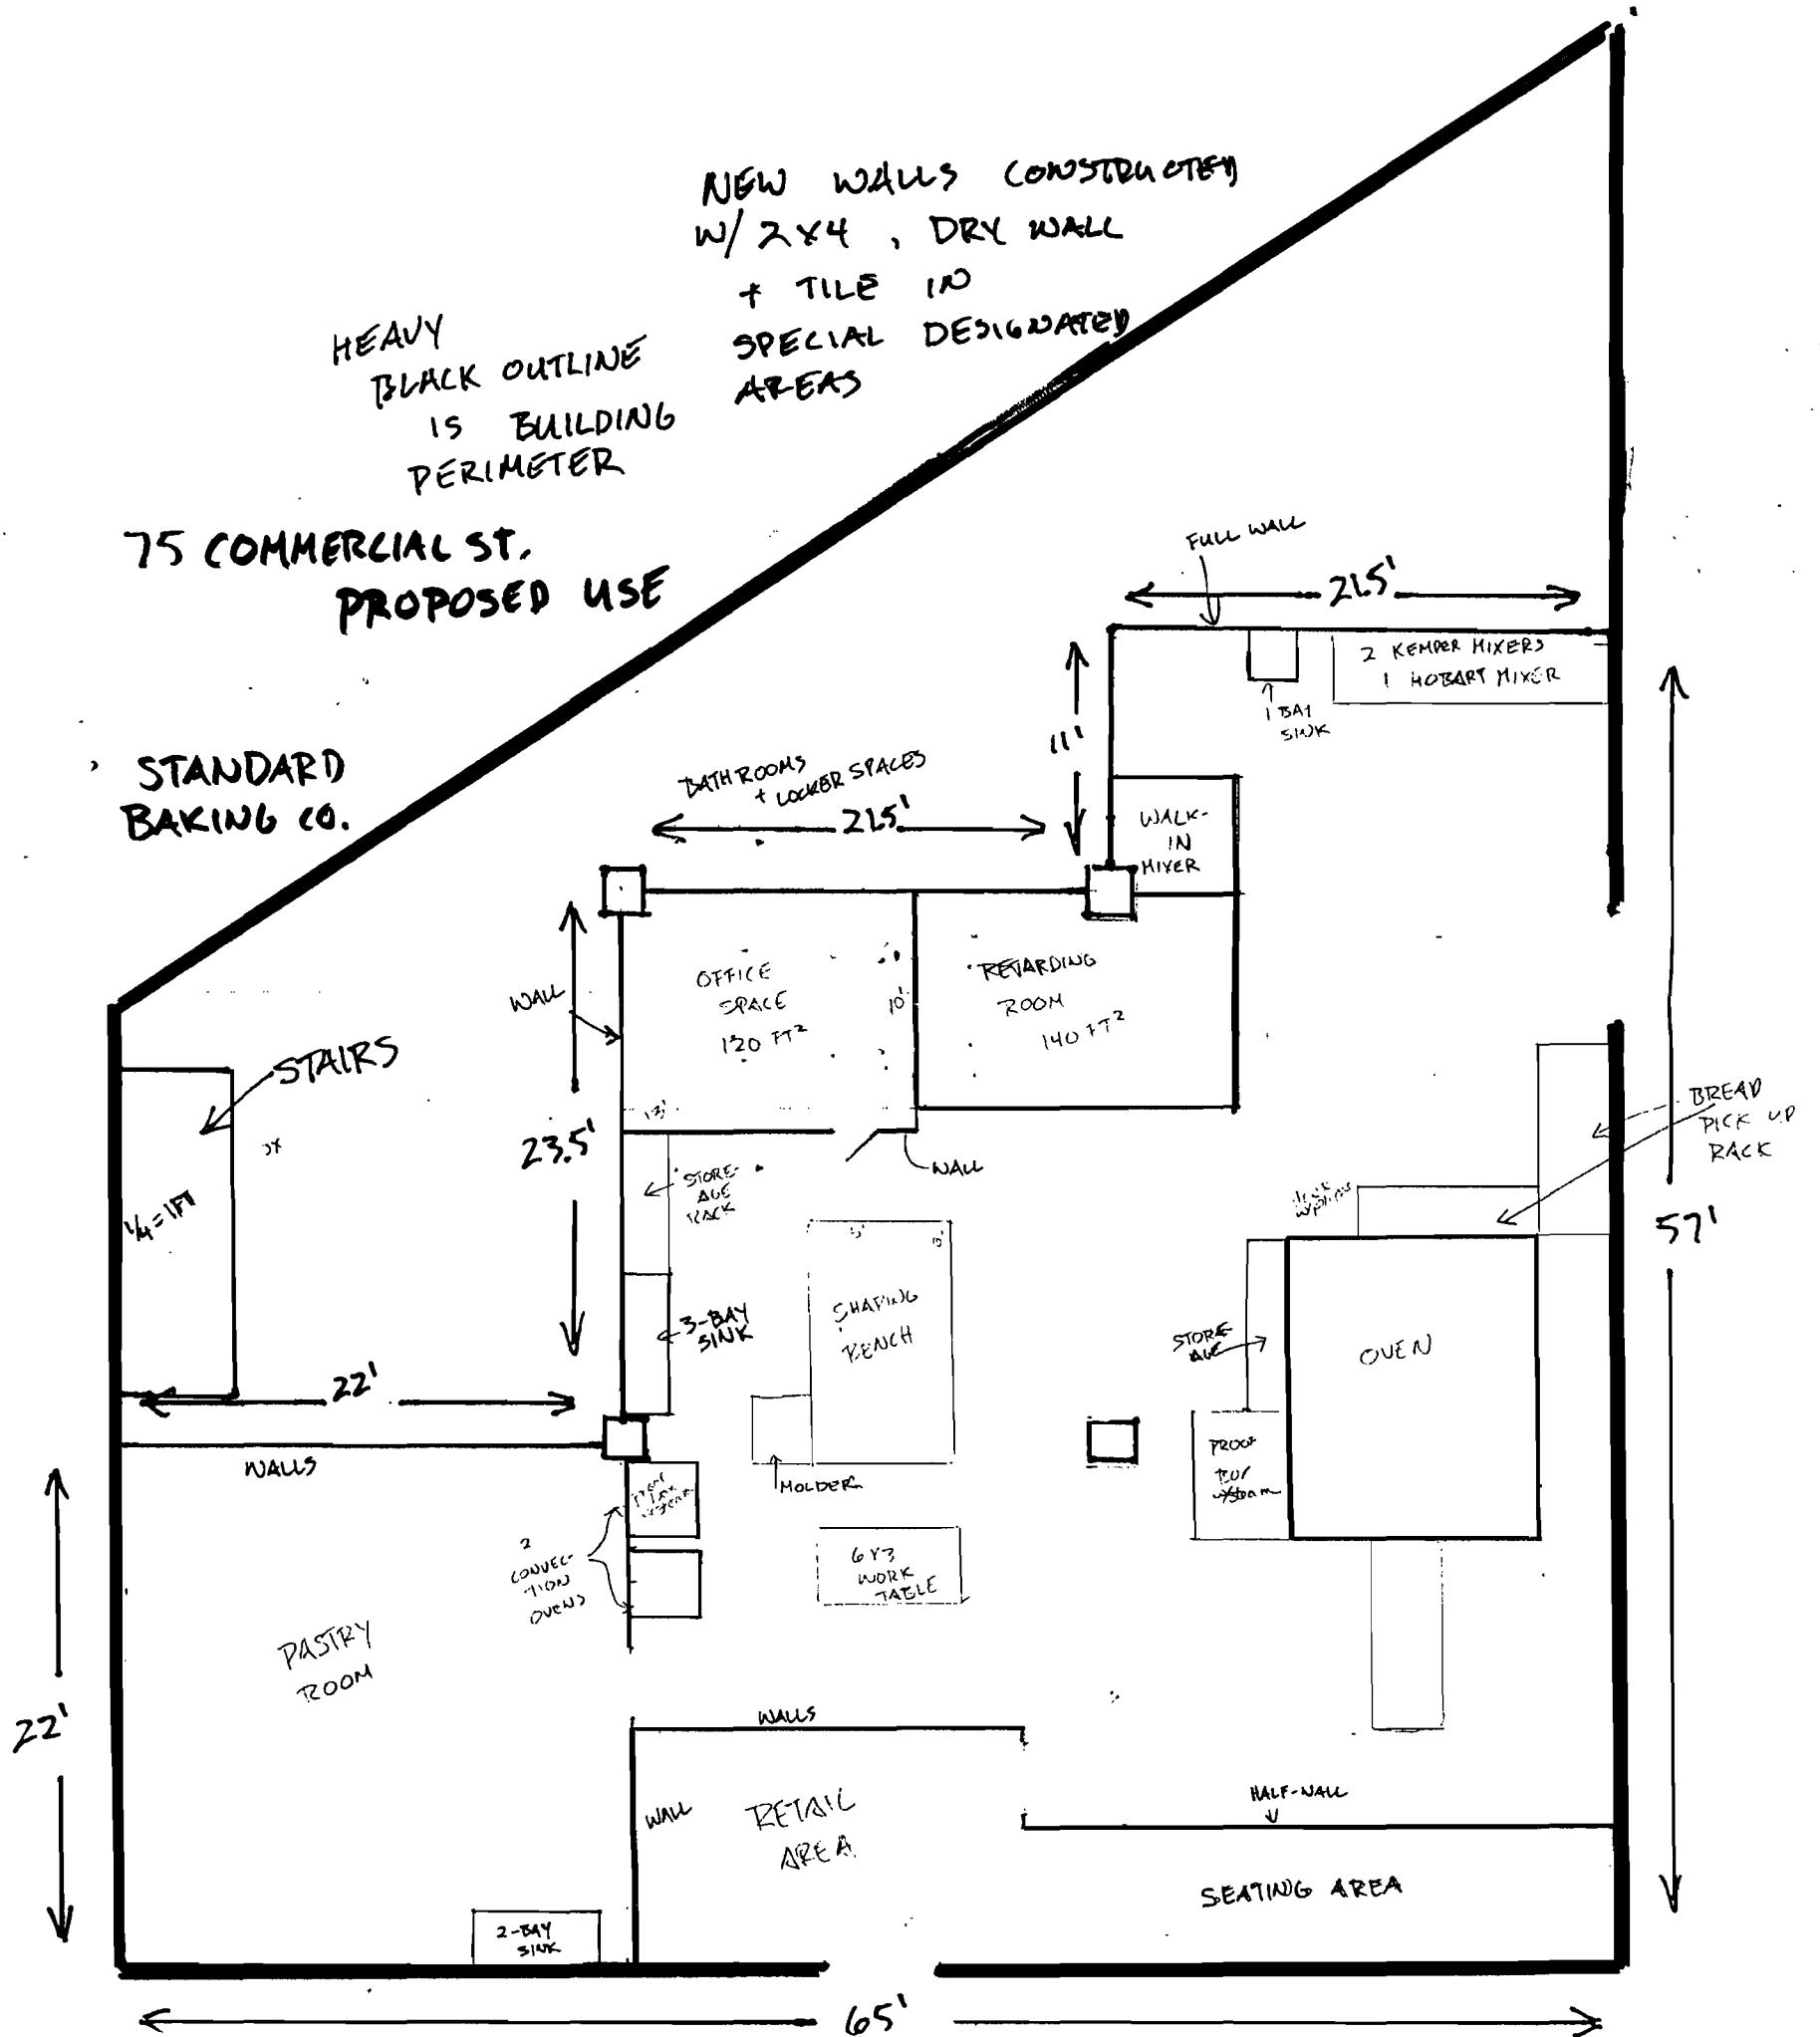 NEW WALLS CONSTRUCTED
W/ 2X4, DRY WALL
+ TILE IN
SPECIAL DESIGNATED
AREAS
HEAVY
BLACK OUTLINE
IS BUILDING
PERIMETER
75 COMMERCIAL ST.
PROPOSED USE
STANDARD
BAKING CO.
FULL WALL
21.5'
2 KEMPER MIXERS
1 HOBART MIXER
1 BAY
SINK
11'
BATHROOMS
+ LOCKER SPACES
21.5'
WALK-
IN
MIXER
WALL
OFFICE
SPACE
120 FT²
10'
RETARDING
ROOM
140 FT²
STAIRS
1/4 = 1FT
13'
23.5'
WALL
STORE-
AGE
RACK
BREAD
PICK UP
RACK
57'
3-BAY
SINK
SHAPING
BENCH
STORE-
AGE
OVEN
22'
WALLS
MOLDER
PROOF
BOX
w/steam
2
CONVEC-
TION
OVENS
6X3
WORK
TABLE
PASTRY
ROOM
22'
WALLS
WALL
RETAIL
AREA
HALF-WALL
SEATING AREA
2-BAY
SINK
65'